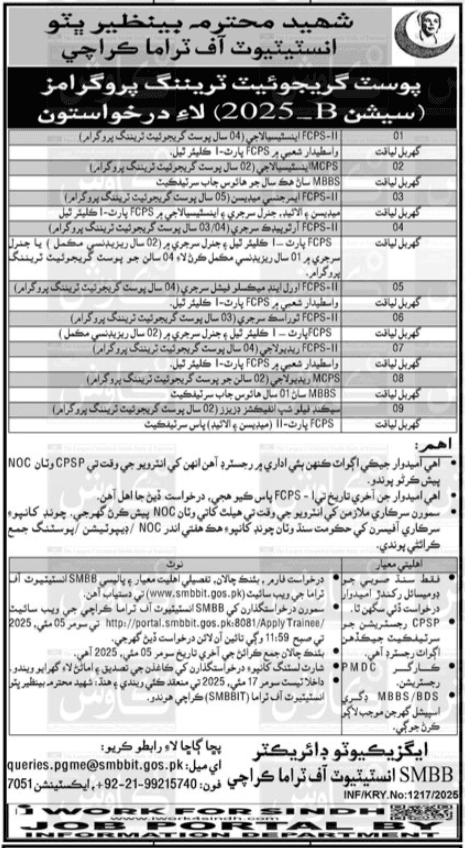 شهيد محترمه بينظير ڀٽو
انسٽيٽيوٽ آف ٽراما ڪراچي
پوسٽ گريجوئيٽ ٽريننگ پروگرامز
(سيشن 2025_B) لاءِ درخواستون
01 FCPS-II اينستيسيالاجي (04 سال پوسٽ گريجوئيٽ ٽريننگ پروگرام)
گهربل لياقت واسطيدار شعبي ۾ FCPS پارٽ-I ڪليئر ٿيل.
02 MCPS اينستيسيالاجي (02 سال پوسٽ گريجوئيٽ ٽريننگ پروگرام)
گهربل لياقت MBBS ساڻ هڪ سال جو هائوس جاب سرٽيفڪيٽ
03 FCPS-II ايمرجنسي ميڊيسن (05 سال پوسٽ گريجوئيٽ ٽريننگ پروگرام)
گهربل لياقت ميڊيسن ۽ الائيڊ، جنرل سرجري ۽ اينستيسيالاجي ۾ FCPS پارٽ-I ڪليئر ٿيل
04 FCPS-II آرٿوپيڊڪ سرجري (03/04 سال پوسٽ گريجوئيٽ ٽريننگ پروگرام)
گهربل لياقت FCPS پارٽ – I ڪليئر ٿيل ۽ جنرل سرجري ۾ (02 سال ريزيڊنسي مڪمل) يا جنرل
سرجري ۾ 01 سال ريزيڊنسي مڪمل ڪرڻ لاءِ 04 سالن جو پوسٽ گريجوئيٽ ٽريننگ
پروگرام.
05 FCPS-II اورل اينڊ ميڪسلو فيشل سرجري (04 سال پوسٽ گريجوئيٽ ٽريننگ پروگرام)
گهربل لياقت واسطيدار شعبي ۾ FCPS پارٽ-I ڪليئر ٿيل.
06 FCPS-II ٿوراسڪ سرجري (03 سال پوسٽ گريجوئيٽ ٽريننگ پروگرام)
گهربل لياقت FCPS پارٽ – I ڪليئر ٿيل ۽ جنرل سرجري ۾ (02 سال ريزيڊنسي مڪمل)
07 FCPS-II ريڊيولاجي (04 سال پوسٽ گريجوئيٽ ٽريننگ پروگرام)
گهربل لياقت واسطيدار شعبي ۾ FCPS پارٽ-I ڪليئر ٿيل.
08 MCPS ريڊيولاجي (02 سالن جو پوسٽ گريجوئيٽ ٽريننگ پروگرام)
گهربل لياقت MBBS ساڻ 01 سال هائوس جاب سرٽيفڪيٽ
09 سيڪنڊ فيلو شپ انفيڪشز ڊزيزز (02 سال پوسٽ گريجوئيٽ ٽريننگ پروگرام)
گهربل لياقت FCPS پارٽ-II (ميڊيسن ۽ الائيڊ) پاس سرٽيفڪيٽ
اهم:
• اهي اميدوار جيڪي اڳواٽ ڪنهن ٻئي اداري ۾ رجسٽرڊ آهن انهن کي انٽرويو جي وقت تي CPSP وٽان NOC
پيش ڪرڻو پوندو.
• اهي اميدوار جن آخري تاريخ تي FCPS - I پاس ڪيو هجي، درخواست ڏيڻ جا اهل آهن.
• سمورن سرڪاري ملازمن کي انٽرويو جي وقت تي هيلٿ کاتي وٽان NOC پيش ڪرڻ گهرجي. چونڊ کانپوءِ
سرڪاري آفيسرن کي حڪومت سنڌ وٽان چونڊ کانپوءِ هڪ هفتي اندر NOC/ ڊيپوٽيشن/ پوسٽنگ جمع
ڪرائڻي پوندي.
اهليتي معيار
• فقط سنڌ صوبي جو
ڊوميسائل رکندڙ اميدوار
درخواست ڏئي سگهن ٿا.
• CPSP رجسٽريشن جو
سرٽيفڪيٽ جيڪڏهن
اڳواٽ رجسٽرڊ آهن.
• ڪارگر PMDC
رجسٽريشن.
• MBBS/BDS ڊگري
اسپيشل گهرجن موجب لاڳو
ڪرڻ جوڳي.
نوٽ
• درخواست فارم، بئنڪ چالان، تفصيلي اهليت معيار ۽ پاليسي SMBB انسٽيٽيوٽ آف
ٽراما جي ويب سائيٽ (www.smbbit.gos.pk) تي دستياب آهن.
• سمورن درخواستگذارن کي SMBB انسٽيٽيوٽ آف ٽراما ڪراچي جي ويب سائيٽ
http://portal.smbbit.gos.pk:8081/Apply Trainee/ تي سومر 05 مئي، 2025
تي صبح 11:59 وڳي تائين آن لائن درخواست ڏيڻ گهرجي.
• بئنڪ چالان جمع ڪرائڻ جي آخري تاريخ سومر 05 مئي، 2025 آهي.
• شارٽ لسٽنگ کانپوءِ درخواستگذارن کي ڪاغذن جي تصديق ۽ اماڻڻ لاءِ گهرايو ويندو.
• داخلا ٽيسٽ سومر 17 مئي، 2025 تي منعقد ڪئي ويندي ۽ هنڌ: شهيد محترمه بينظير ڀٽو
انسٽيٽيوٽ آف ٽراما (SMBBIT) ڪراچي هوندو.
ايگزيڪيوٽو ڊائريڪٽر
SMBB انسٽيٽيوٽ آف ٽراما ڪراچي
INF/KRY.No:1217/2025
پڇا ڳاڇا لاءِ رابطو ڪريو:
اي ميل: queries.pgme@smbbit.gos.pk
فون: +92-21-99215740، ايڪسٽينشن 7051
I WORK FOR SINDH
www.iwork4sindh.com
JOB PORTAL BY
INFORMATION DEPARTMENT